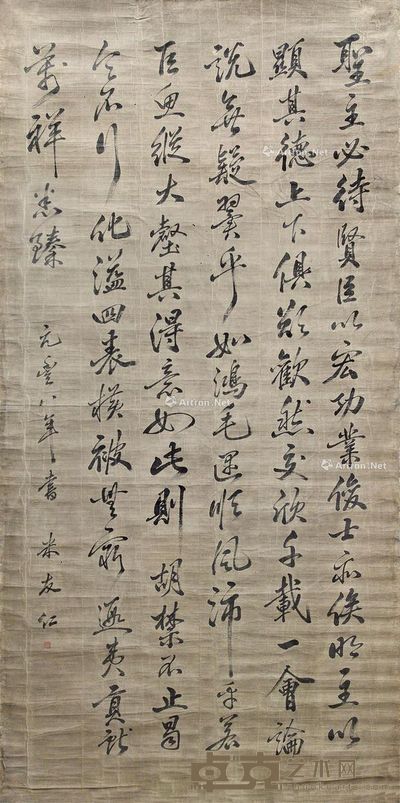 聖主必待賢臣以宏功業俊士亦俟明主以
顯其德上下俱欲歡然交欣千載一會論
說無疑翼乎如鴻毛遇順風沛乎若
巨魚縱大壑其得意如此則胡禁不止曷
令不行化溢四表橫被無窮遐夷貢獻
萬祥臻
元豐八年書 米友仁
Artron.Net
Artron.Net
Artron.Net
Artron.Net
卓克艺术网